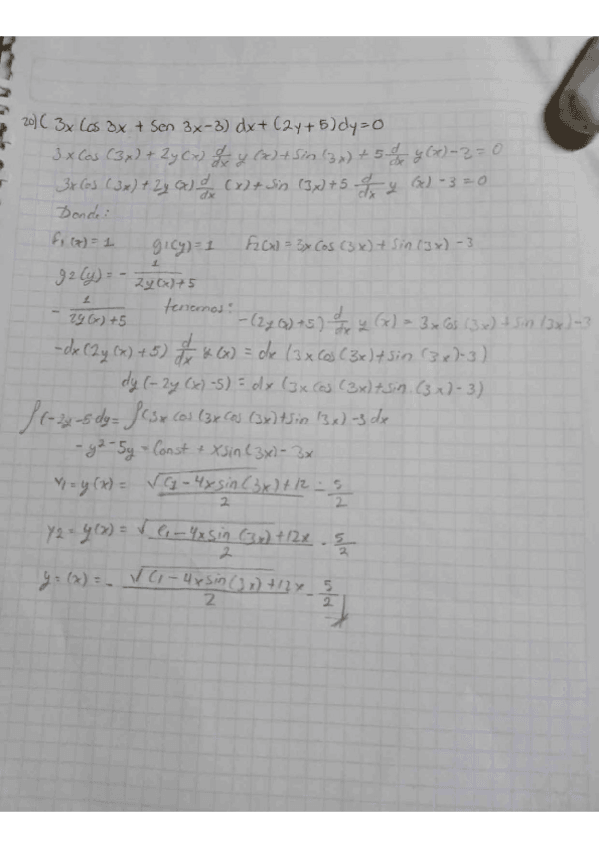 20) ( 3x Cos 3x + Sen 3x-3) dx + (2y + 5) dy = 0
3x Cos (3x) + 2y(x) d/dx y (x) + Sin (3x) + 5 d/dx y(x) - 2 = 0
3x Cos (3x) + 2y (x) d/dx (x) + Sin (3x) + 5 d/dx y (x) - 3 = 0
Donde:
f1(x) = 1 g1(y) = 1 F2(x) = 3x Cos (3x) + Sin (3x) - 3
g2(y) = - 1/2y(x)+5
- 1/2y(x)+5 tenemos: -(2y(x)+5) d/dx y (x) = 3x Cos (3x) + Sin (3x) - 3
-dx (2y(x) + 5) d/dx y(x) = dx (3x Cos (3x) + Sin (3x) - 3)
dy (-2y(x) - 5) = dx (3x Cos (3x) + Sin (3x) - 3)
∫(-2y - 5 dy = ∫(3x Cos (3x Cos (3x) + Sin (3x) - 3 dx
- y² - 5y = Const + x Sin (3x) - 3x
y1 = y(x) = √C1 - 4x sin (3x) + 12/2 - 5/2
Y2 = y(x) = √C1 - 4x sin (3x) + 12x/2 - 5/2
y = (x) = - √C1 - 4x sin (3x) + 12x/2 - 5/2